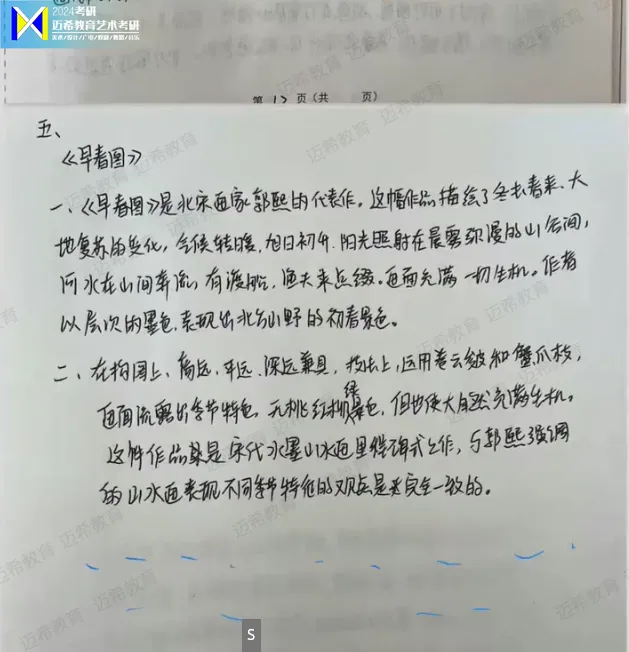 2024考研
迈希教育艺术考研
第 12 页(共 页)
五、
《早春图》
一、《早春图》是北宋画家郭熙的代表作。这幅作品描绘了冬去春来、大
地复苏的变化,气候转暖,旭日初升.阳光照射在晨雾弥漫的山谷间,
河水在山间奔流,有渡船,渔夫来点缀。画面充满一切生机。作者
以层次的墨色,表现出北方山野的初春景色。
二、在构图上、高远、平远、深远兼具,技法上,运用卷云皴和蟹爪枝,
画面流露出季节特色,无桃红柳绿色,但也使大自然充满生机。
这件作品是宋代水墨山水画里程碑式之作,与郭熙强调
的山水画表现不同季节特征的观点是完全一致的。
迈希教育
S